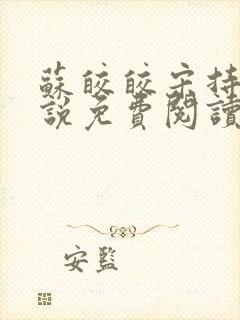 蘇皎皎宋持
說免費閱讀
安監